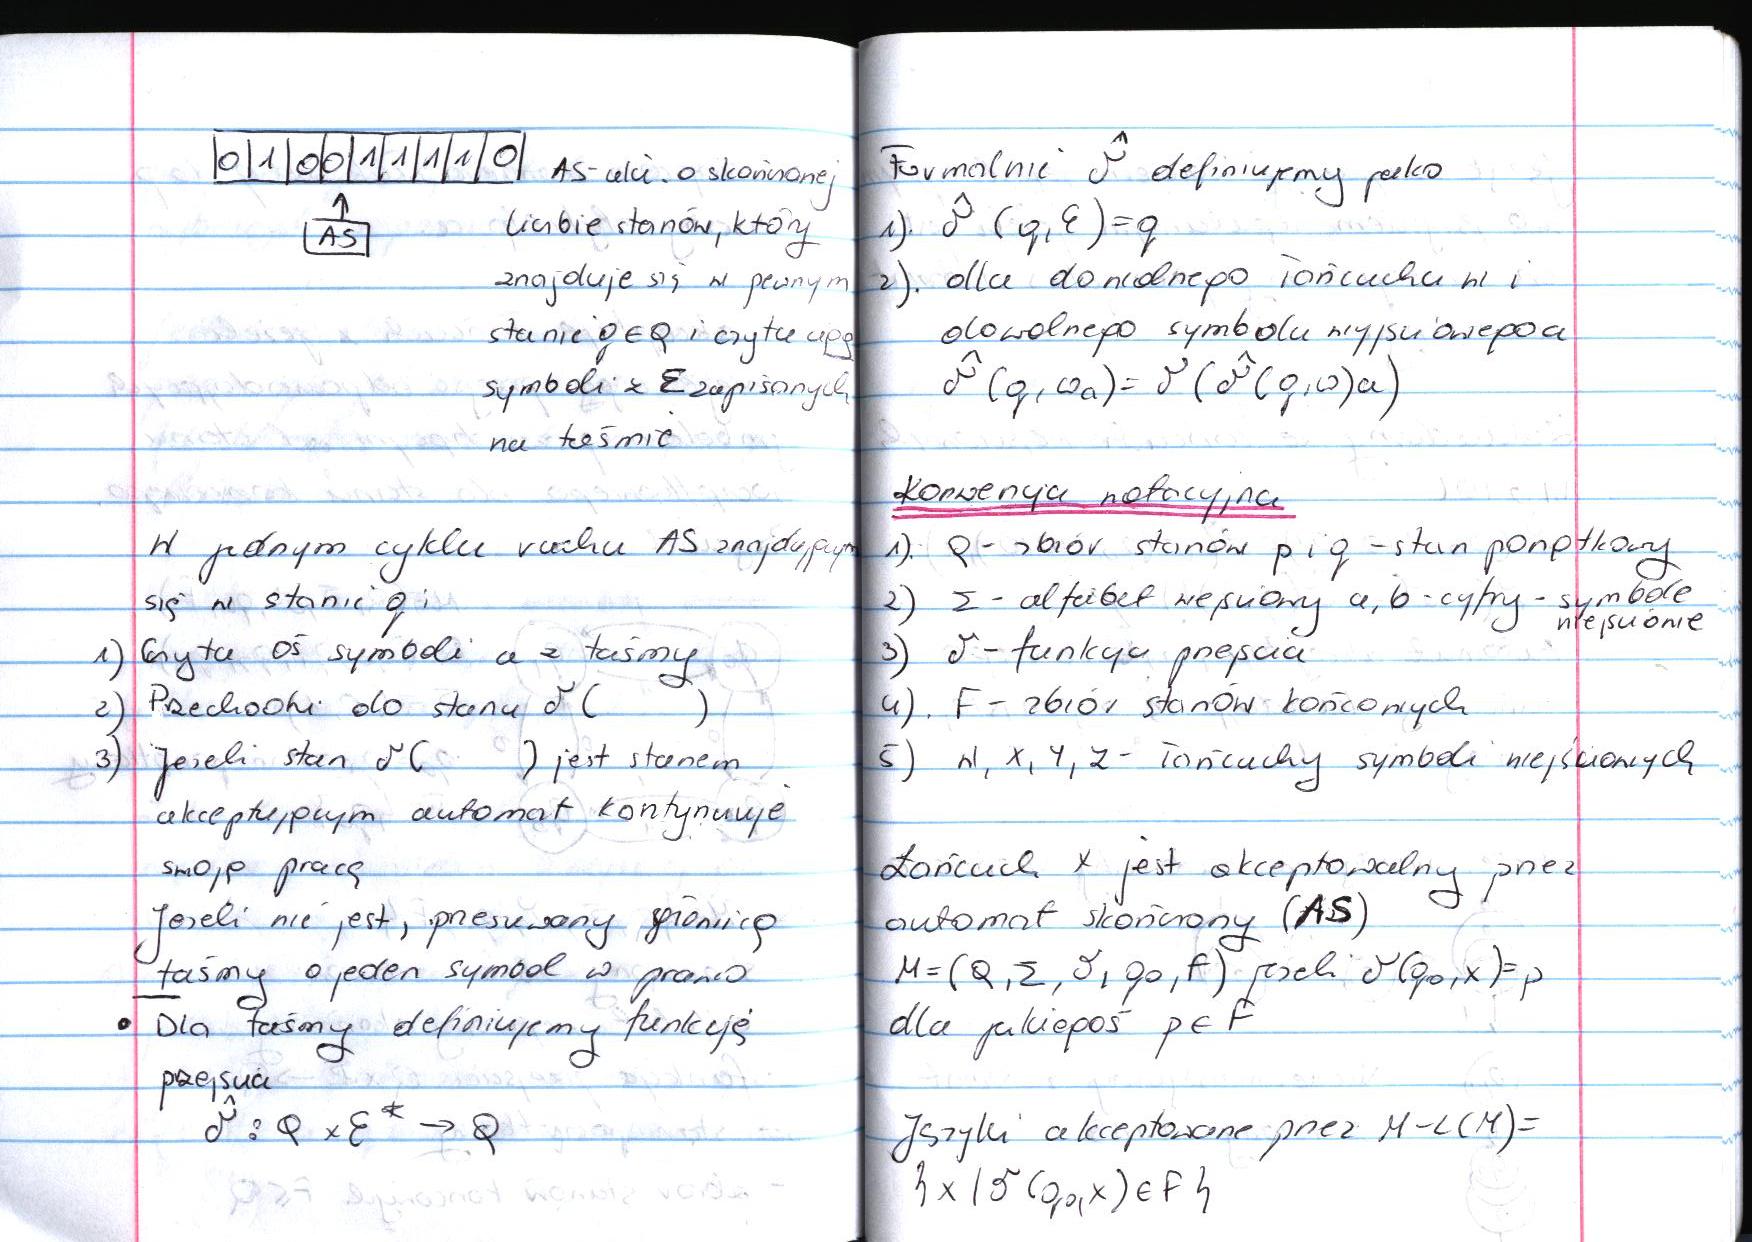 0 1 0 0 1 1 1 1 0
AS
AS-ukł. o skończonej
liczbie stanów, który
znajduje się w pewnym
stanie q ∈ Q i czyta ciąg
symboli z Σ zapisanych
na taśmie
W jednym cyklu ruchu AS znajdującym
się w stanie q i
1) Czyta oś symboli a z taśmy
2) Przechodzi do stanu δ( )
3) Jeżeli stan δ( ) jest stanem
akceptującym automat kontynuuje
swoją pracę
Jeżeli nie jest, przesuwany głowicę
taśmy o jeden symbol w prawo
• Dla taśmy definiujemy funkcję
przejścia
δ̂ : Q × Σ* → Q
Formalnie δ̂ definiujemy jako
1). δ̂ (q, ε) = q
2). dla dowolnego łańcucha w i
dowolnego symbolu wyjściowego a
δ̂ (q, ωa) = δ (δ̂ (q, ω) a)
Konwencja notacyjna
1). Q - zbiór stanów p i q - stan początkowy
2) Σ - alfabet wejściowy a, b - cyfry - symbole
wejściowe
3) δ - funkcja przejścia
4). F - zbiór stanów końcowych
5) W, X, Y, Z - łańcuchy symboli wejściowych
Łańcuch x jest akceptowalny przez
automat skończony (AS)
M = (Q, Σ, δ, q₀, F) jeżeli δ(q₀, x) = p
dla jakiegoś p ∈ F
Języki akceptowane przez M - L(M) =
{ x | δ (q₀, x) ∈ F }